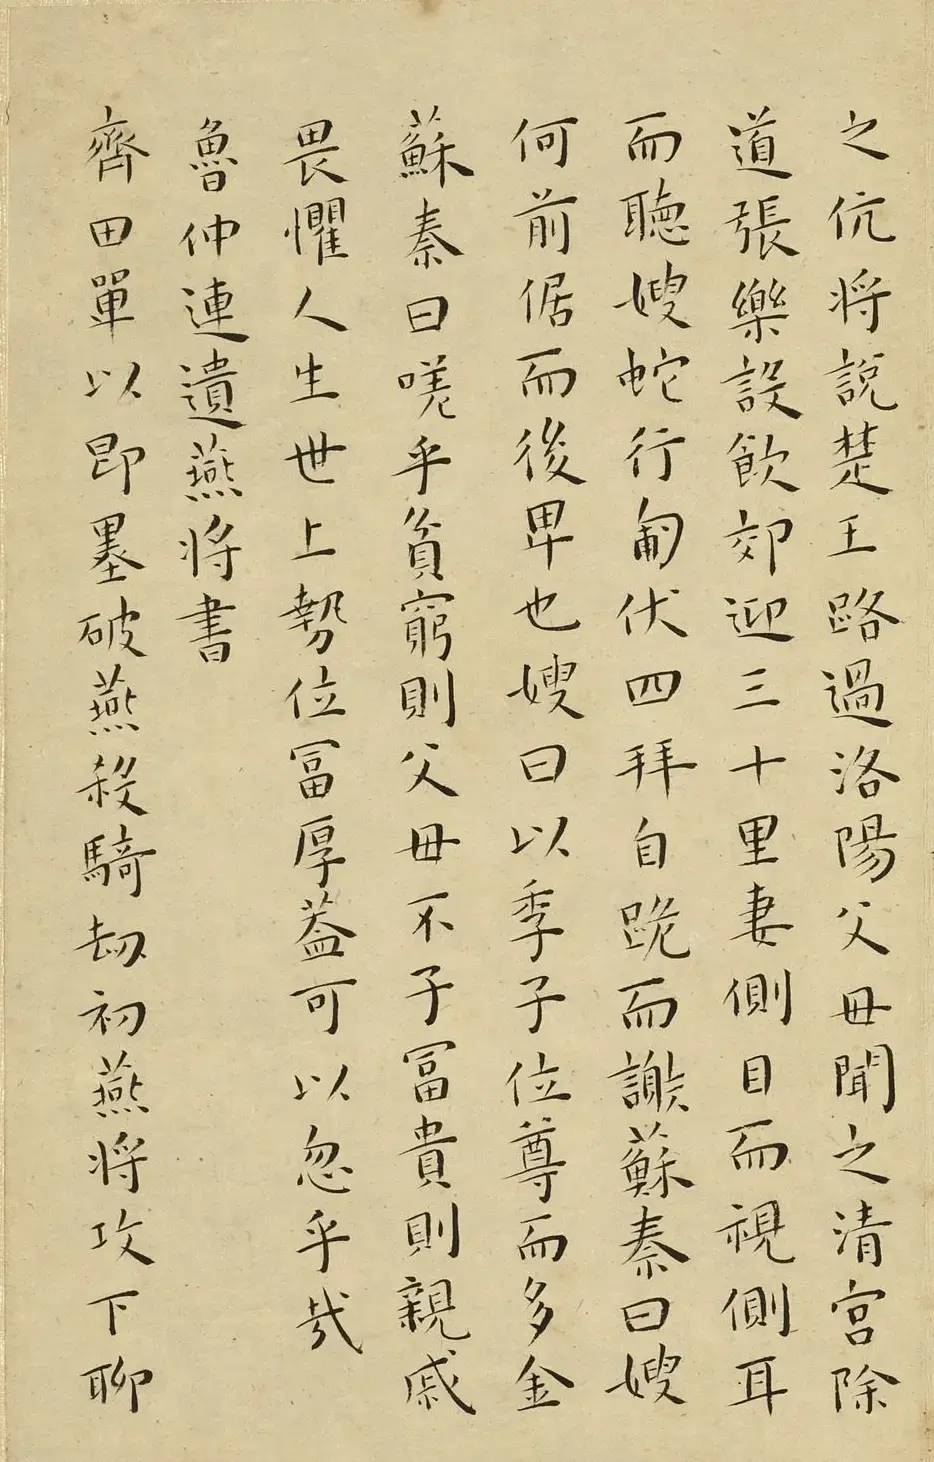 之伉將說楚王路過洛陽父毋聞之清宮除
道張樂設飲郊迎三十里妻側目而視側耳
而聽嫂蛇行匍伏四拜自跪而謝蘇秦曰嫂
何前倨而後卑也嫂曰以季子位尊而多金
蘇秦曰嗟乎貧窮則父毋不子富貴則親戚
畏懼人生世上勢位冨厚蓋可以忽乎哉
魯仲連遺燕將書
齊田單以即墨破燕殺騎劫初燕將攻下聊